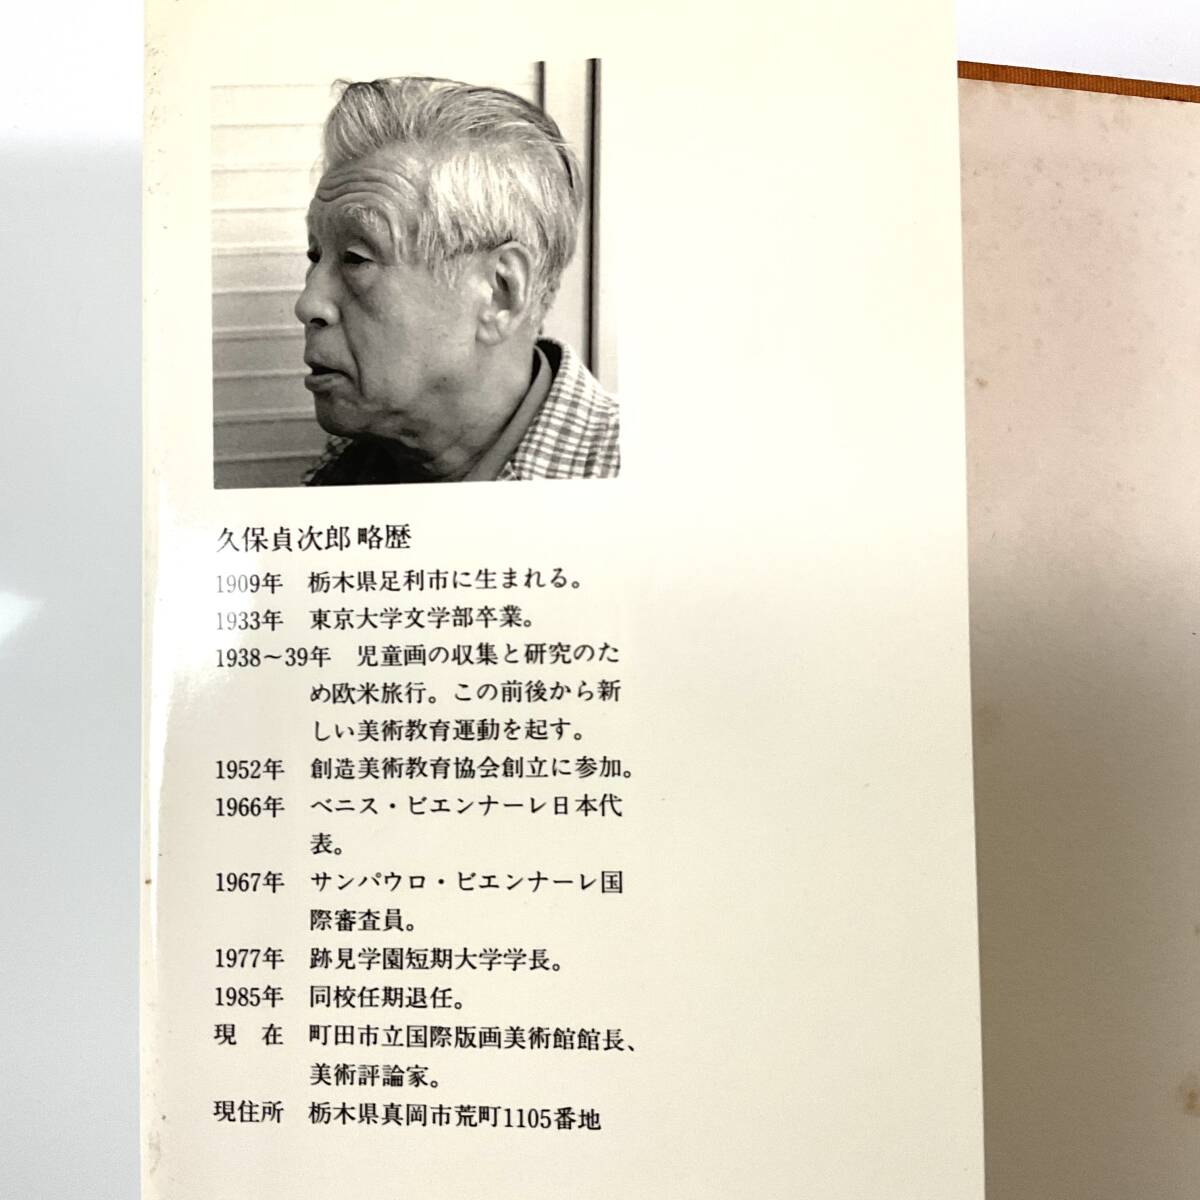 久保貞次郎略歴
1909年 栃木県足利市に生まれる。
1933年 東京大学文学部卒業。
1938〜39年 児童画の収集と研究のた
め欧米旅行。この前後から新
しい美術教育運動を起す。
1952年 創造美術教育協会創立に参加。
1966年 ベニス・ビエンナーレ日本代
表。
1967年 サンパウロ・ビエンナーレ国
際審査員。
1977年 跡見学園短期大学学長。
1985年 同校任期退任。
現 在 町田市立国際版画美術館館長、
美術評論家。
現住所 栃木県真岡市荒町1105番地